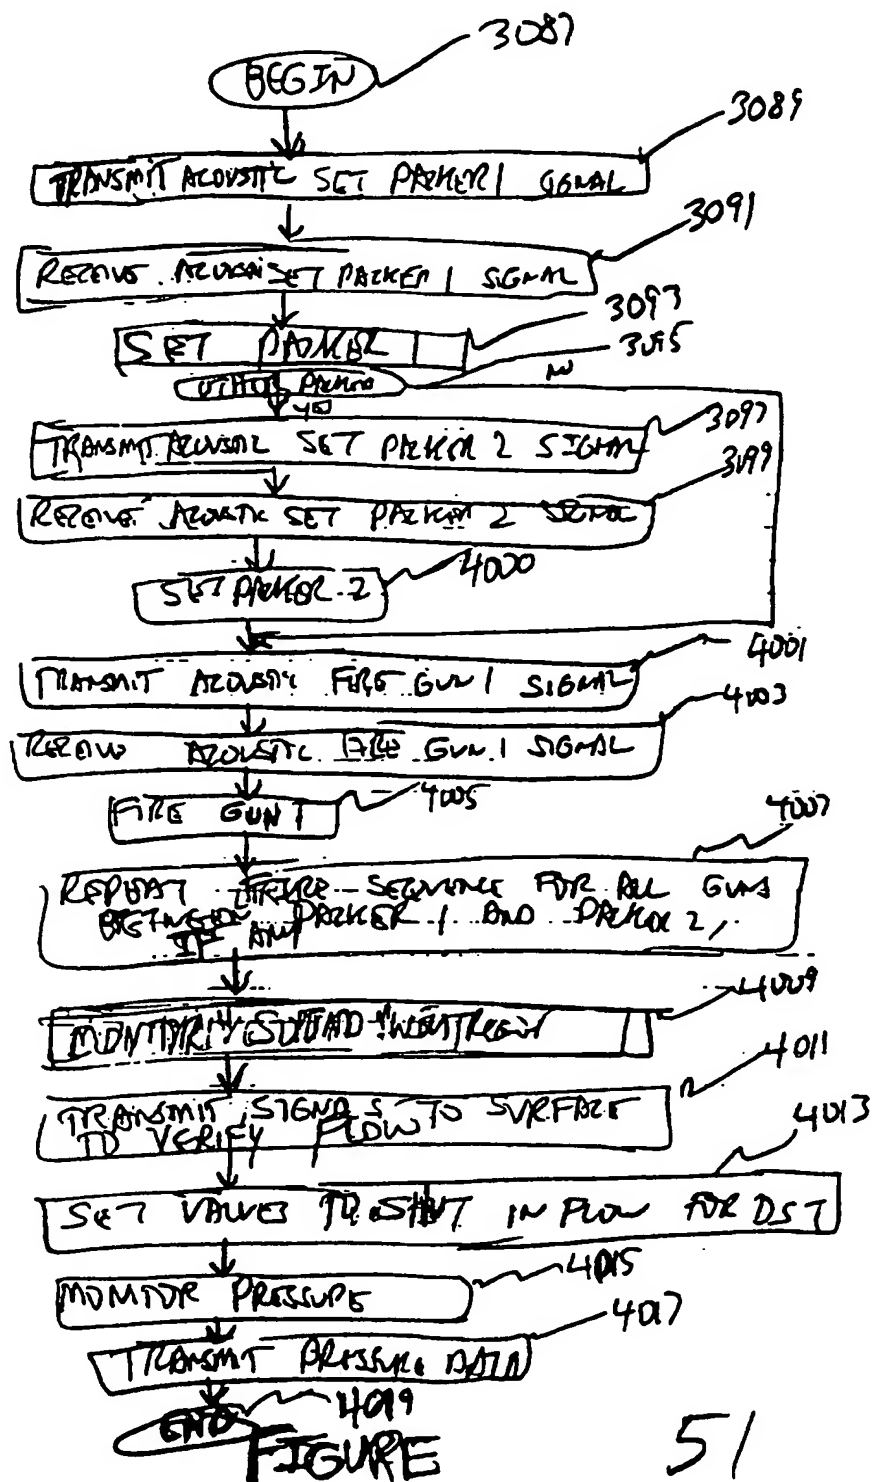 3087
BEGIN
3089
TRANSMIT ACOUSTIC SET PACKER 1 SIGNAL
3091
RECEIVE ACOUSTIC SET PACKER 1 SIGNAL
3093
SET PACKER 1
3095
OTHER PACKER
NO
YES
3097
TRANSMIT ACOUSTIC SET PACKER 2 SIGNAL
3099
RECEIVE ACOUSTIC SET PACKER 2 SIGNAL
4000
SET PACKER 2
4001
TRANSMIT ACOUSTIC FIRE GUN 1 SIGNAL
4003
RECEIVE ACOUSTIC FIRE GUN 1 SIGNAL
4005
FIRE GUN 1
4007
REPEAT FIRE SEQUENCE FOR ALL GUNS
BETWEEN PACKER 1 AND PACKER 2,
IF ANY
4009
MONITOR
4011
TRANSMIT SIGNALS TO SURFACE
TO VERIFY FLOW
4013
SET VALVES TO SHUT IN FLOW FOR DST
4015
MONITOR PRESSURE
4017
TRANSMIT PRESSURE DATA
4019
END
FIGURE 51